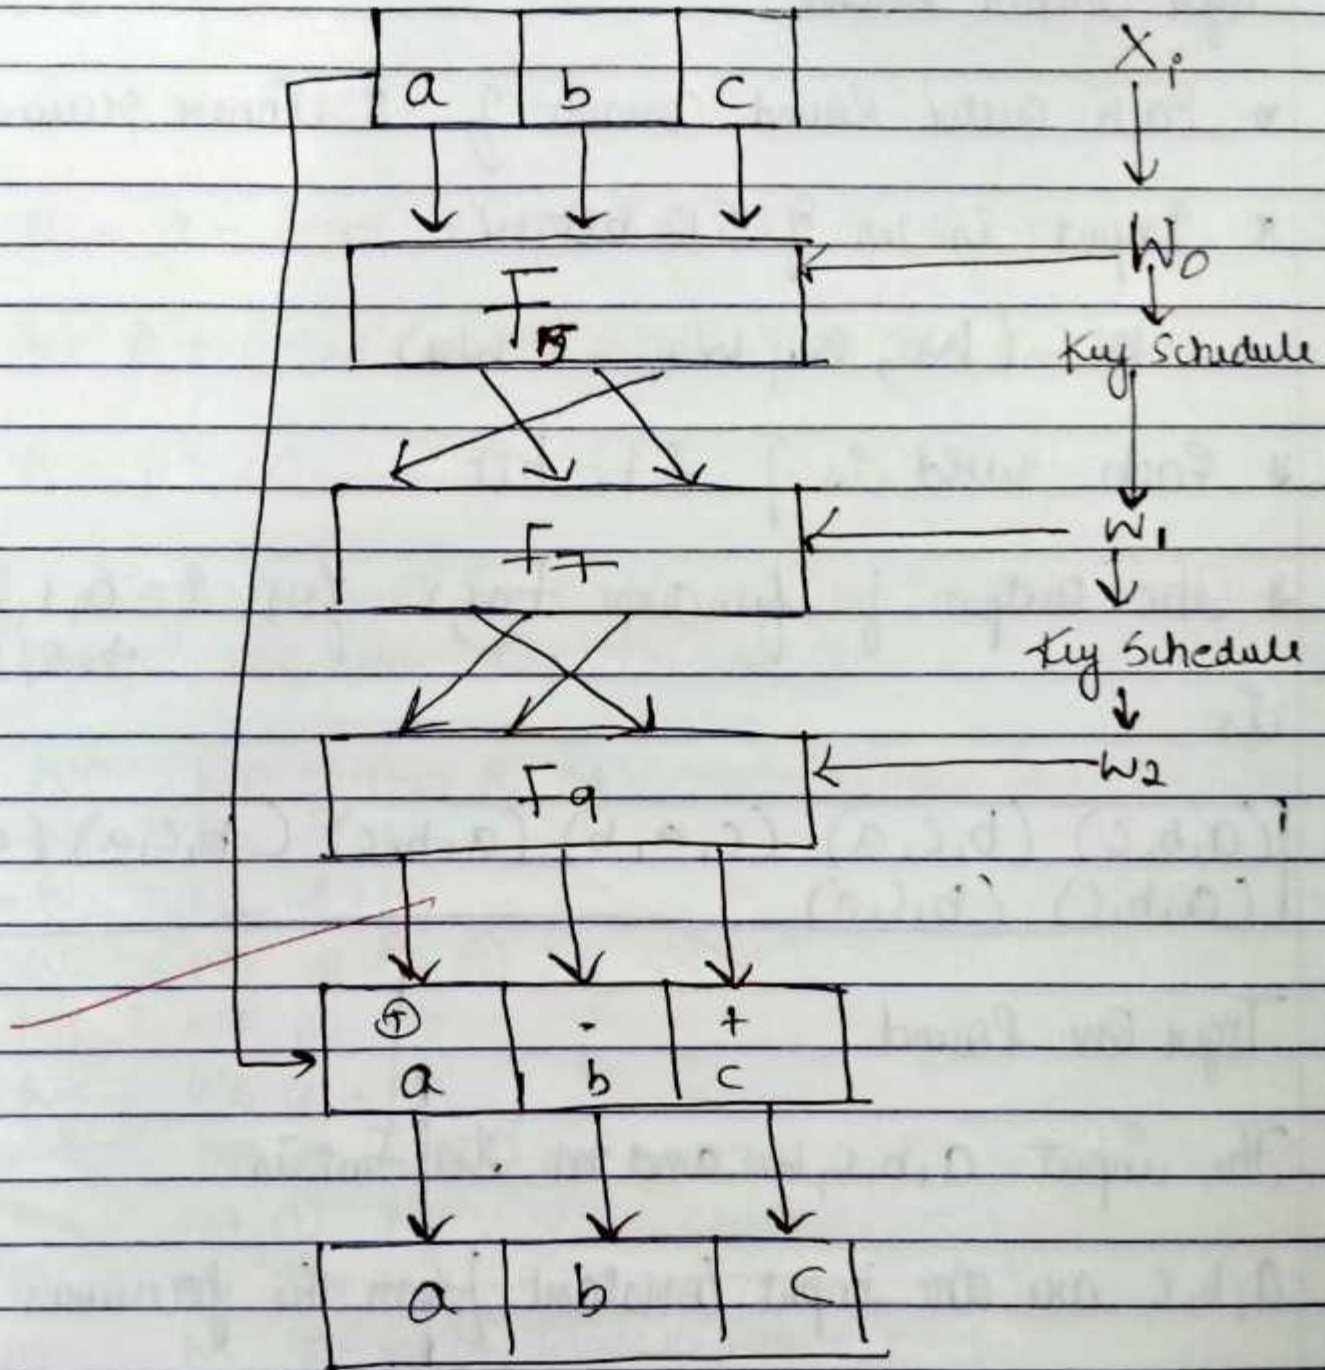 a b c
X i
W0
F5
Key Schedule
F7
W1
Key Schedule
F9
W2
⊕ - +
a b c
a b c